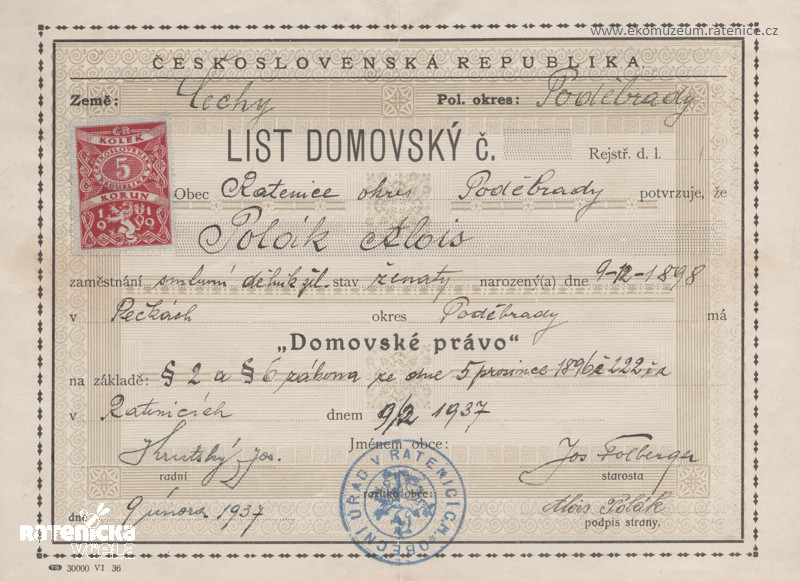 www.ekomuzeum.ratenice.cz
ČESKOSLOVENSKÁ REPUBLIKA
Země: Čechy Pol. okres: Poděbrady
LIST DOMOVSKÝ č. Rejstř. d. l.
ČR
KOLEK
ČESKOSLOVENSKÁ
5
REPUBLIKA
KORUN
1919
Obec Ratenice okres Poděbrady potvrzuje, že
Polák Alois
zaměstnání smluvní dělník žel. stav ženatý narozený(a) dne 9-12-1898
v Pečkách okres Poděbrady má
„Domovské právo"
na základě: § 2 a § 6 zákona ze dne 5 prosince 1896 č 222 ř z
v Ratenicích dnem 9/2 1937
Jménem obce:
Jos.
radní
Jos Folberger
starosta
OBECNÍ ÚŘAD V RATENICÍCH
razítko obce:
dne 9 února 1937
Alois Polák
podpis strany.
RATENICKÁ
VČELA
30000 VI 36